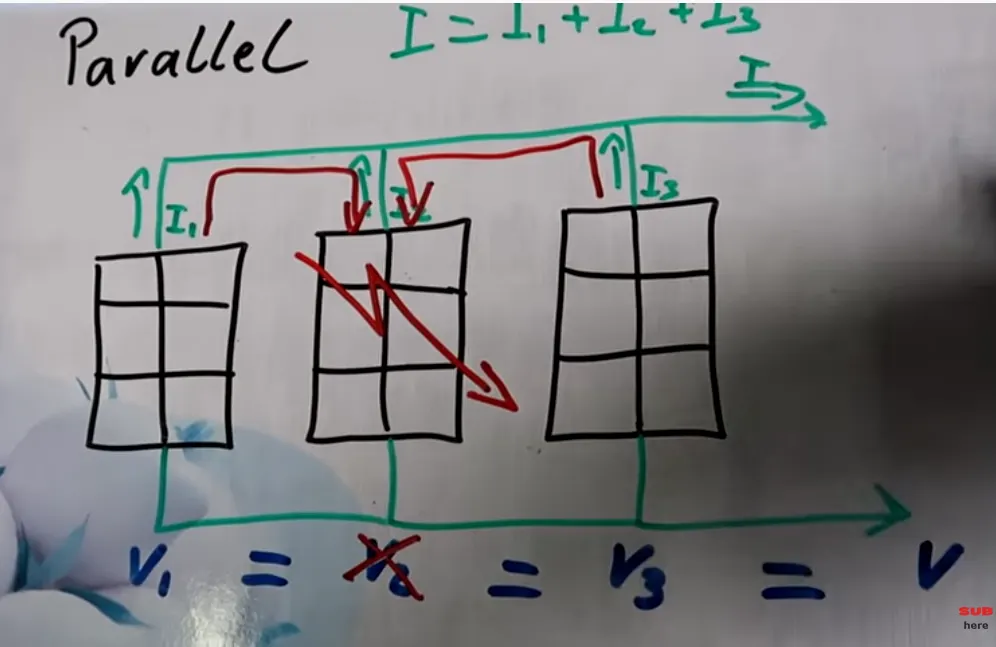 Parallel
I = I₁ + I₂ + I₃
I
I₁
I₃
V₁ = V₂ = V₃ = V
SUB
here